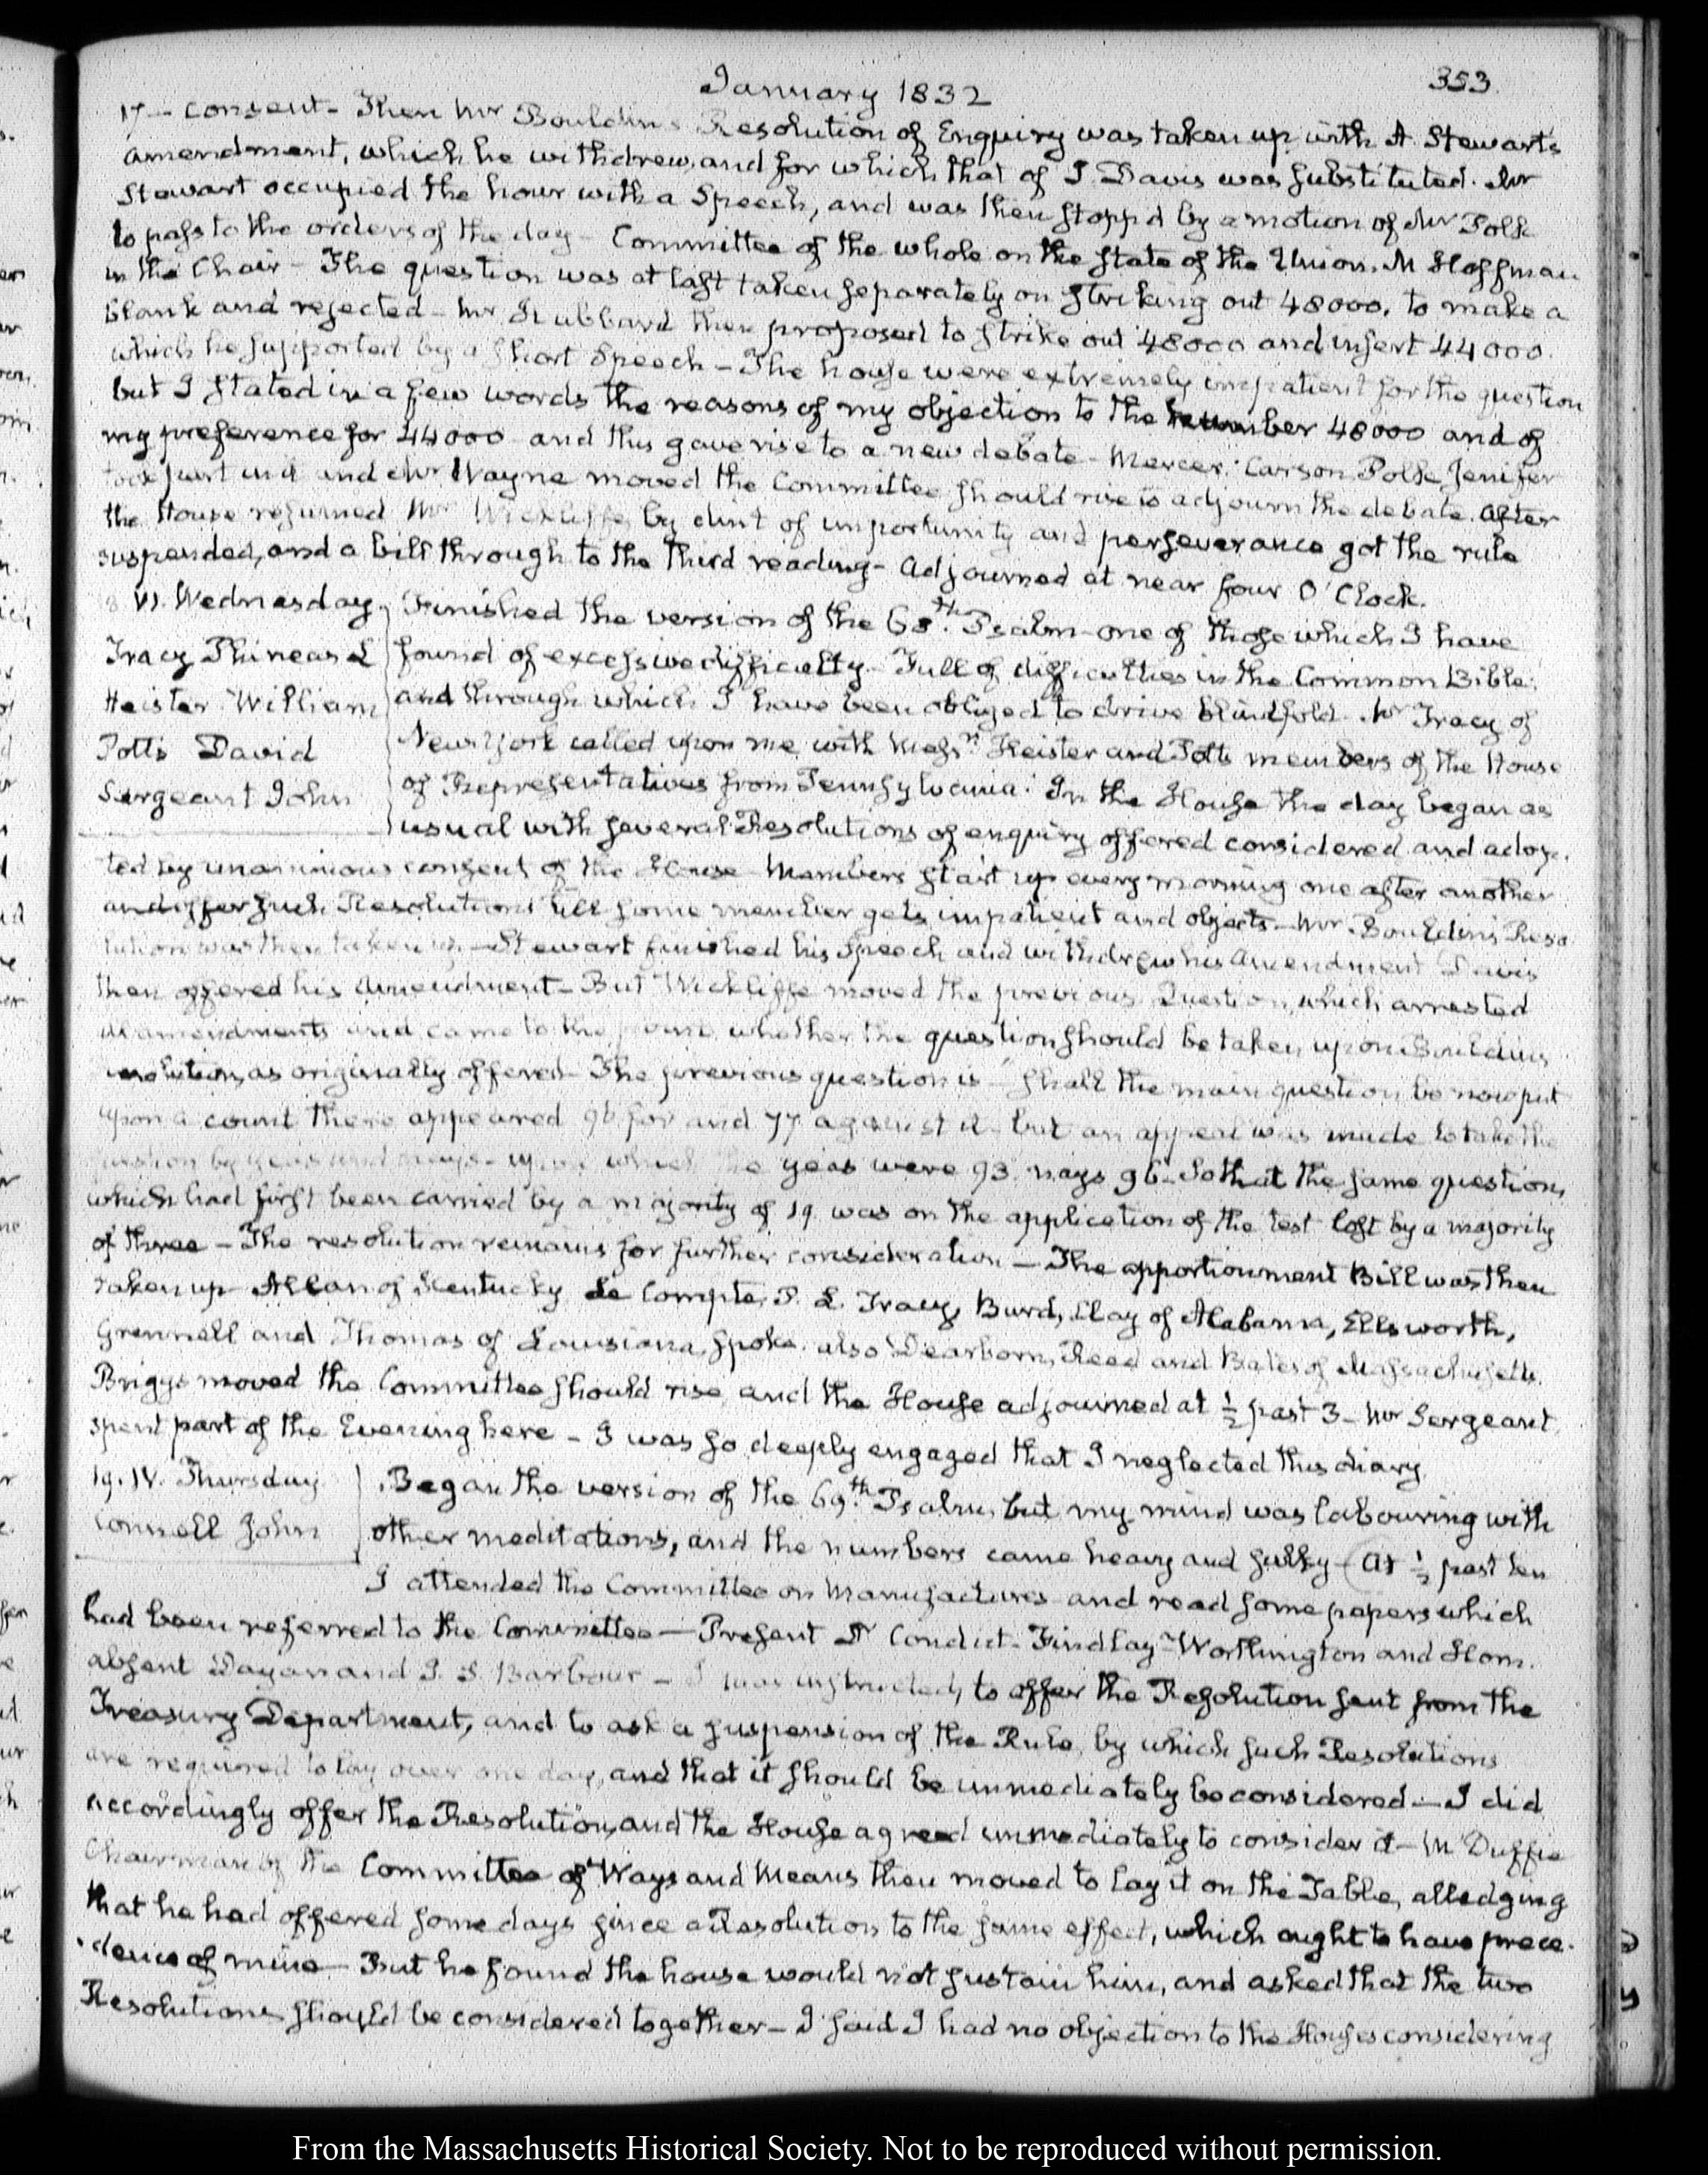 January 1832
353
17 – consent – Then Mr Bouldin's Resolution of Enquiry was taken up with A. Stewart's
amendment, which he withdrew, and for which that of J. Davis was substituted. Mr
Stewart occupied the hour with a Speech, and was then stopp'd by a motion of Mr Polk
to pass to the orders of the day – Committee of the whole on the state of the Union. M Hoffman
in the Chair – The question was at last taken separately on striking out 48000. to make a
blank and rejected – Mr Hubbard then proposed to strike out 48000 and insert 44000.
which he supported by a short Speech – The house were extremely impatient for the question
but I stated in a few words the reasons of my objection to the number 48000 and of
my preference for 44000 and this gave rise to a new debate – Mercer, Carson Polk, Jenifer
took part in it and Mr Wayne moved the Committee should rise to adjourn the debate. After
the House resumed Mr Wickliffe by dint of importunity and perseverance got the rule
suspended, and a bill through to the third reading – Adjourned at near four O'Clock.
18. IV. Wednesday.
Tracy Phineas L
Heister William
Potts David
Sergeant John
Finished the version of the 68th Psalm – one of those which I have
found of excessive difficulty – Full of difficulties in the Common Bible;
and through which I have been obliged to drive blindfold. Mr Tracy of
New York called upon me with Messrs Heister and Potts members of the House
of Representatives from Pennsylvania. In the House the day began as
usual with several Resolutions of enquiry offered considered and adop-
ted by unanimous consent of the House Members start up every morning one after another
and offer such Resolutions till some member gets impatient and objects – Mr. Bouldin's Reso-
lution was then taken up. – Stewart finished his Speech and withdrew his Amendment Davis
then offered his Amendment – But Wickliffe moved the previous Question, which arrested
all amendments and came to the point whether the question should be taken upon Bouldins
resolution as originally offered – The previous question is – shall the main question be now put
upon a count there appeared 96 for and 77 against it – but an appeal was made to take the
question by yeas and nays – upon which the yeas were 93. nays 96 – So that the same question,
which had first been carried by a majority of 19. was on the application of the test lost by a majority
of three – The resolution remains for further consideration – The apportionment Bill was then
taken up – Allan of Kentucky Le Compte, P. L. Tracy, Burd, Clay of Alabama, Ellsworth,
Grennell and Thomas of Louisiana, spoke. also Dearborn, Reed and Bates of Massachusetts.
Briggs moved the Committee should rise and the House adjourned at ½ past 3 – Mr Sergeant
spent part of the Evening here – I was so deeply engaged that I neglected this diary
19. IV. Thursday
Connell John
Began the version of the 69th Psalm, but my mind was labouring with
other meditations, and the numbers came heavy and sulky – At ½ past ten
I attended the Committee on Manufactures and read some papers which
had been referred to the Committee – Present Dr Condict – Findlay – Worthington and Horn.
absent Dayan and J. S. Barbour – I was instructed, to offer the Resolution sent from the
Treasury Department, and to ask a suspension of the Rule, by which such Resolutions
are required to lay over one day, and that it should be immediately be considered – I did
accordingly offer the Resolution, and the House agreed immediately to consider it – McDuffie
Chairman of the Committee of Ways and Means then moved to lay it on the Table, alledging
that he had offered some days since a Resolution to the same effect, which ought to have prece-
dence of mine – But he found the house would not sustain him, and asked that the two
Resolutions should be considered together – I said I had no objection to the House's considering
From the Massachusetts Historical Society. Not to be reproduced without permission.